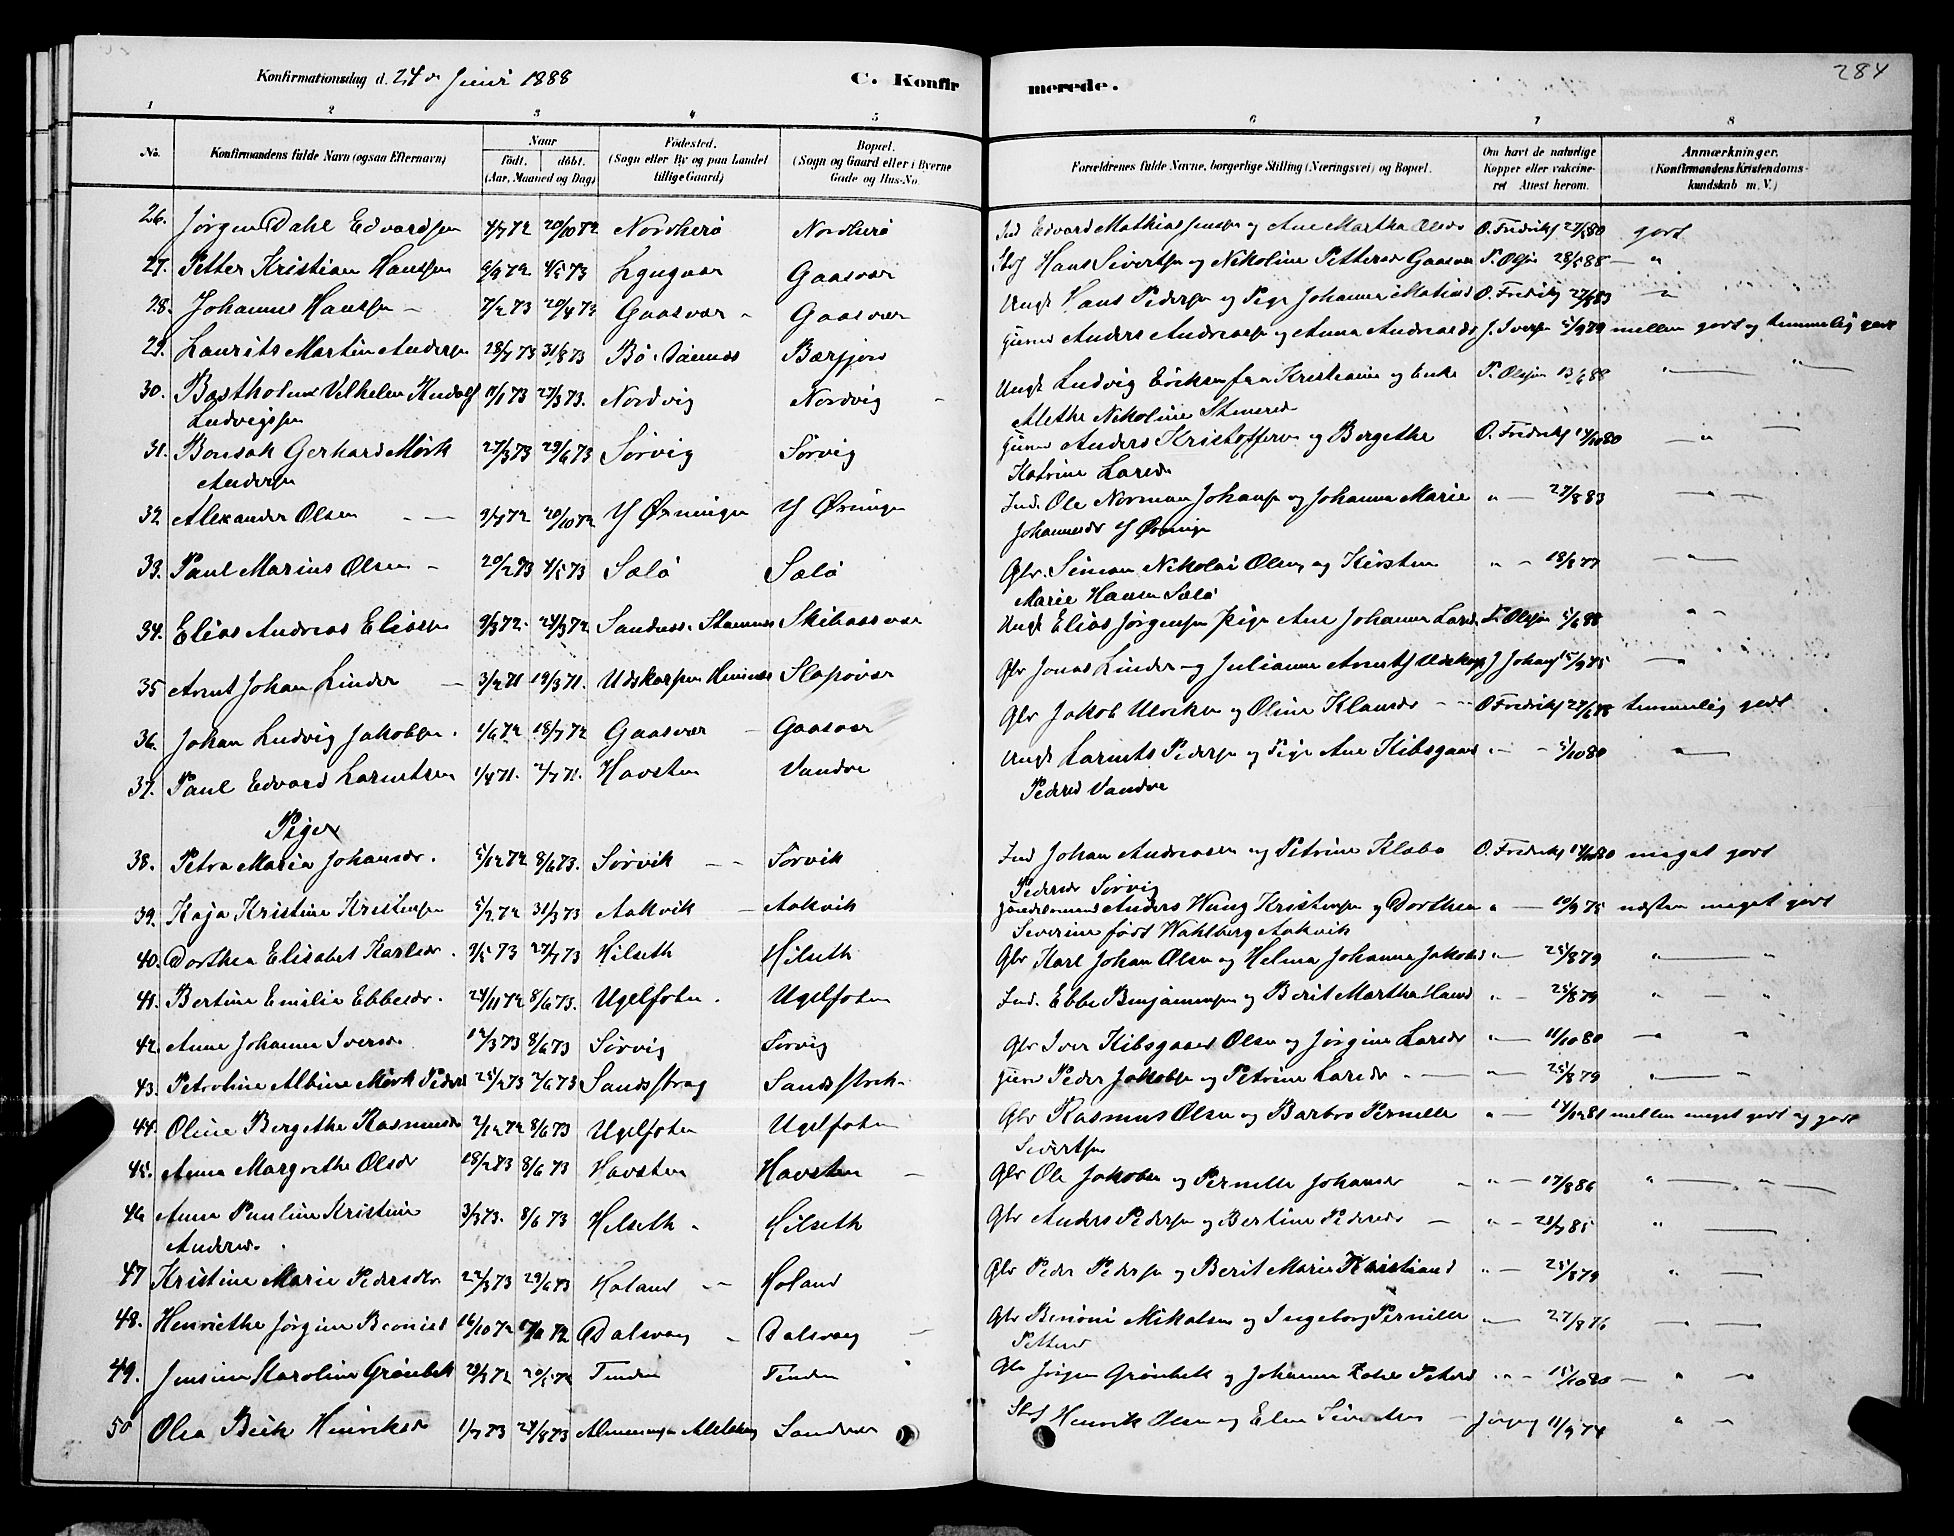 Konfirmationsdag d. 24de Juni 1888 C. Konfirmerede. 284
1 2 3 4 5 6 7 8
No. Konfirmandens fulde Navn (ogsaa Efternavn) Naar født. døbt. (Aar, Maaned og Dag) Fødested. (Sogn eller By og paa Landet tillige Gaard) Bopæl. (Sogn og Gaard eller i Byerne Gade og Hus-No. Forældrenes fulde Navne, borgerlige Stilling (Næringsvei) og Bopæl. Om havt de naturlige Kopper eller vakcineret Attest herom. Anmærkninger. (Konfirmandens Kristendomskundskab m. V.)
26. Jørgen Dahl Edvardsen 4/7 72 20/10 72 Nordherø Nordherø Ind Edvard Mathias Jensen og Ane Martha Olsdr O. Fredriks 27/8 80 godt
27. Petter Kristian Hanssen 9/9 72 4/5 73 Lyngvær Gaasvær Hans Sivertsen og Nikoline Pettersd Gaasvær P. Olsen 28/5 88 — "
28. Johannes Hanssen — 7/2 73 20/4 73 Gaasvær Gaasvær Ungk Hans Pedersen og Pige Johanna Matiasd O. Fredriks 27/8 83 "
29. Laurits Martin Andersen 28/7 73 31/8 73 Bø Dønnes Bærfjord Anders Andreasen og Anna Andreasdr J. Iversen 5/9 79 mellem godt og temmelig godt
30. Bastholm Vilhelm Rudolf 11/1 73 23/3 73. Nordvig Nordvig Ungk Ludvig Eriksen fra Kristiania og Enke P. Olsen 13/6 88 " "
Ludvigsen Alethe Nikoline Steensd
31. Bonsak Gerhard Mørk 27/3 73 29/6 73 Sørvig Sørvig Anders Kristoffersen og Bergethe O. Fredriks 14/10 80 — " —
Andersen Katrine Larsdr
32 Alexander Olsen — 9/7 72 20/10 72 Y Øxningen Y Øxningen Ind. Ole Norman Johansen og Johanna Marie " — 27/8 83 — " —
Johannesdr Y Øxningen
33. Paul Marius Olsen — 20/2 73 4/5 73 Sælø Sælø Gbr. Simon Nikolai Olsen og Kirsten " — 18/8 77 — " —
Marie Hansen Sælø
34. Elias Andreas Eliasen 9/3 72. 24/3 72 Sandnes. Stamnes Skibaasvær Ungk Elias Jørgensen Pige Ane Johanna Larsd P. Olsen 5/6 88 " "
35 Arnt Johan Linder — 3/2 71 19/3 71. Udskarpen Hemnæs Slapøvær Gbr Jonas Linder og Julianna Arntsd Udskarp J Johans 15/9 75 — " —
36. Johan Ludvig Jakobsen. 1/6 72 18/7 72 Gaasvær — Gaasvær Gbr Jakob Ulriksen og Oline Klausdr — O Fredriks 27/6 78 temmelig godt
37. Paul Edvard Larnitsen 1/4 71. 2/7 71. Havsten Vandve Ungk Larnits Pedersen og Pige Ane Kibsgaard " — 5/10 80 "
Pedersd Vandve
Piger
38. Petra Maria Johansdr. 5/12 72 8/6 73. Sørvik — Sørvik Ind Johan Andreasen og Petrine Klabo O. Fredriks 14/10 80 meget godt
Pedersdr Sørvig
39. Kaja Kristine Kristensen 5/7 72 31/3 73 Aakvik — Aakvik Anders Wang Kristensen og Dorthea " — 10/9 75 næsten meget godt
Severine født Wahlberg Aakvik
40. Dorthea Elisabet Karlsdr. 9/5 73 27/7 73 Hilseth Hilseth Gbr Karl Johan Olsen og Helma Johanna Jakobsd " — 25/8 79 " "
41. Bertine Emilie Ebbesdr. 24/11 72 8/6 73. Ugelfoten. Ugelfoten Ind. Ebbe Benjaminsen og Berit Martha Hansd " — 25/8 79 " — "
42. Anna Johanna Iversdr. 12/3 73 8/6 73 Sørvig Sørvig Gbr Iver Kibsgaard Olsen og Jørgine Larsdr " — 11/10 80 " "
43. Petroline Albine Mørk Pedersd 25/2 73 2/6 73 Sandsstrag Sandsstrek. Peder Jakobsen og Petrine Larsdr. — " — 25/8 79 " —
44. Oline Bergethe Rasmusdr 2/12 72 8/6 73 Ugelfoten Ugelfoten Gbr Rasmus Olsen og Barbro Pernille " — 14/12 81 mellem meget godt og godt
Sivertsen
45. Anna Margrethe Olsdr 18/2 73 8/6 73 Havsten Havsten — Gbr Ole Jakobsen og Pernille Johansdr " — 17/8 86 " — " —
46 Anna Pauline Kristine 3/3 73. 8/6 73 Hilseth. Hilseth Gbr Anders Pedersen og Bertine Pedersdr — " — 21/7 85 " —
Andersdr.
47 Kristine Marie Pedersdr 22/3 73 29/6 73 Holand — Holand Gbr Peder Pedersen og Berit Marie Kristiansd " — 25/8 79 " —
48. Henriethe Jørgine Benonisd 16/10 72 17/11 72 Dalsvaag — Dalsvaag — Gbr Benoni Mikalsen og Ingeborg Pernille " — 27/8 76 — —
Pettersd
49. Jensine Karoline Grønbek 29/3 72 20/5 72 Tenden Tenden Gbr Jørgen Grønbek og Johanna Petersd " — 15/10 80 — " "
50 Olsa Bech Henriksdr 1/7 73 24/8 73 Almenningen Alstahaug Sandvær Henrik Olsen og Elen Sivertsen — 11/9 74 " "